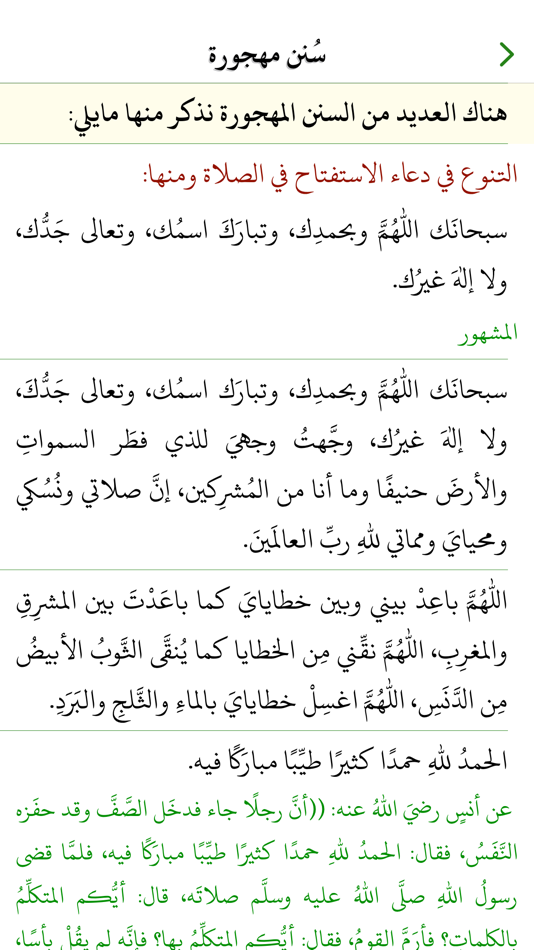 سُنن مهجورة
هناك العديد من السنن المهجورة نذكر منها مايلي:
التنوع في دعاء الاستفتاح في الصلاة ومنها:
سبحانَك اللَّهُمَّ وبحمدِك، وتبارَكَ اسمُك، وتعالى جَدُّك،
ولا إلهَ غيرُك.
المشهور
سبحانَك اللَّهُمَّ وبحمدِك، وتبارَك اسمُك، وتعالى جَدُّكَ،
ولا إلهَ غيرُك، وجَّهتُ وجهيَ للذي فطَر السمواتِ
والأرضَ حنيفًا وما أنا من المُشرِكين، إنَّ صلاتي ونُسُكي
ومحيايَ ومماتي للهِ ربِّ العالَمينَ.
اللَّهُمَّ باعِدْ بيني وبين خطايايَ كما باعَدْتَ بين المشرِقِ
والمغرِبِ، اللَّهُمَّ نقِّني مِن الخطايا كما يُنقَّى الثَّوبُ الأبيضُ
مِن الدَّنَسِ، اللَّهُمَّ اغسِلْ خطايايَ بالماءِ والثَّلجِ والبَرَدِ.
الحمدُ للهِ حمدًا كثيرًا طيِّبًا مبارَكًا فيه.
عن أنسٍ رضيَ اللهُ عنه: ((أنَّ رجلًا جاء فدخَل الصَّفَّ وقد حفَزه
النَّفَسُ، فقال: الحمدُ للهِ حمدًا كثيرًا طيِّبًا مبارَكًا فيه، فلمَّا قضى
رسولُ اللهِ صلَّى اللهُ عليه وسلَّم صلاتَه، قال: أيُّكم المتكلِّمُ
بالكلماتِ؟ فأرَمَّ القومُ، فقال: أيُّكم المتكلِّمُ بها؟ فإنَّه لم يقُلْ بأسًا،